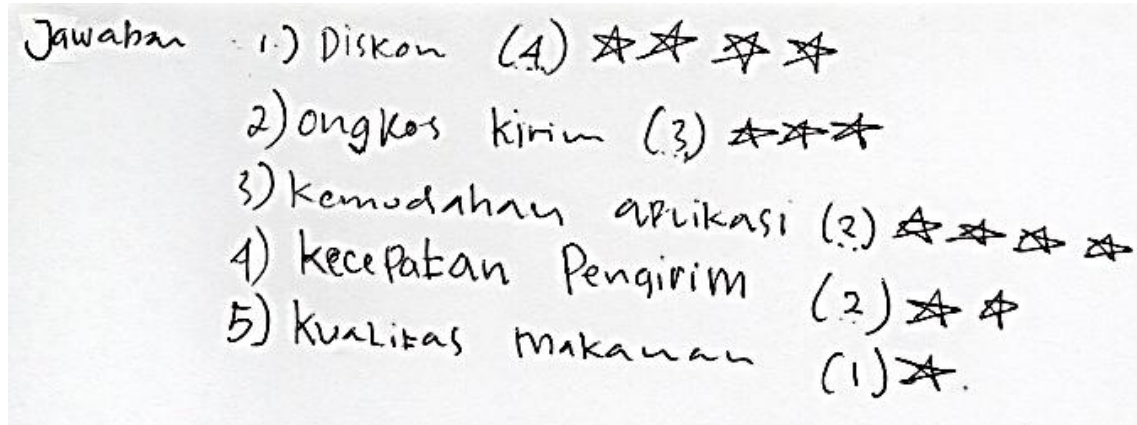 Jawaban 1.) Diskon (4) ☆☆☆☆
2) ongkos kirim (3) ☆☆☆
3) kemudahan aplikasi (2) ☆☆☆☆
4) kecepatan Pengirim (2) ☆☆
5) kualitas makanan (1) ☆.